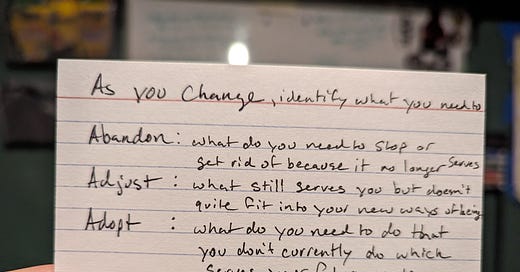 As you Change, identify what you need to
Abandon: what do you need to stop or
get rid of because it no longer serves
Adjust : what still serves you but doesn't
quite fit into your new ways of being
Adopt : what do you need to do that
you don't currently do which